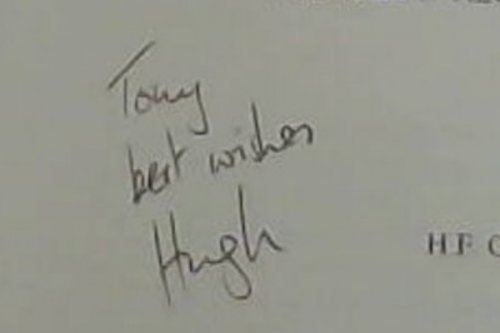 Tony
best wishes
Hugh
H F